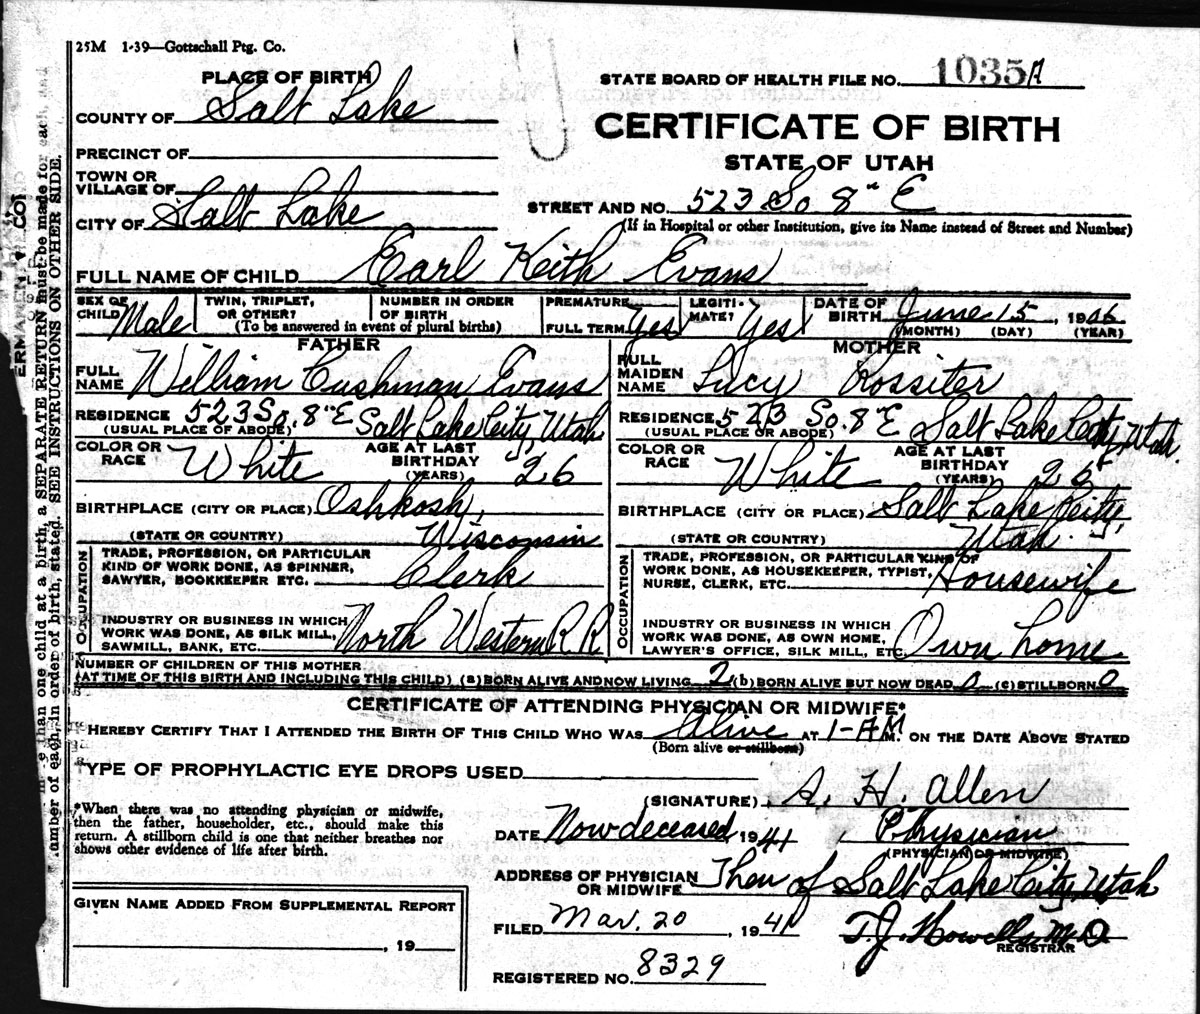 25M 1-39—Gottschall Ptg. Co.
PLACE OF BIRTH
STATE BOARD OF HEALTH FILE NO. 1035A
COUNTY OF Salt Lake
CERTIFICATE OF BIRTH
PRECINCT OF
STATE OF UTAH
TOWN OR VILLAGE OF
CITY OF Salt Lake
STREET AND NO. 523 So 8" E
(If in Hospital or other Institution, give its Name instead of Street and Number)
FULL NAME OF CHILD Earl Keith Evans
SEX OF CHILD Male
TWIN, TRIPLET, OR OTHER?
NUMBER IN ORDER OF BIRTH
(To be answered in event of plural births)
PREMATURE
FULL TERM Yes
LEGITIMATE? Yes
DATE OF BIRTH June 15, 1906
(MONTH) (DAY) (YEAR)
FATHER
FULL NAME William Cushman Evans
RESIDENCE 523 So. 8" E Salt Lake City, Utah
(USUAL PLACE OF ABODE)
COLOR OR RACE White
AGE AT LAST BIRTHDAY (YEARS) 26
BIRTHPLACE (CITY OR PLACE) Oshkosh,
(STATE OR COUNTRY) Wisconsin
OCCUPATION
TRADE, PROFESSION, OR PARTICULAR
KIND OF WORK DONE, AS SPINNER,
SAWYER, BOOKKEEPER ETC. Clerk
INDUSTRY OR BUSINESS IN WHICH
WORK WAS DONE, AS SILK MILL,
SAWMILL, BANK, ETC. North Western R.R.
MOTHER
FULL MAIDEN NAME Lucy Rossiter
RESIDENCE 523 So. 8" E Salt Lake City, Utah
(USUAL PLACE OR ABODE)
COLOR OR RACE White
AGE AT LAST BIRTHDAY (YEARS) 25
BIRTHPLACE (CITY OR PLACE) Salt Lake City,
(STATE OR COUNTRY) Utah.
OCCUPATION
TRADE, PROFESSION, OR PARTICULAR KIND OF
WORK DONE, AS HOUSEKEEPER, TYPIST,
NURSE, CLERK, ETC. Housewife
INDUSTRY OR BUSINESS IN WHICH
WORK WAS DONE, AS OWN HOME,
LAWYER'S OFFICE, SILK MILL, ETC. Own home
NUMBER OF CHILDREN OF THIS MOTHER
(AT TIME OF THIS BIRTH AND INCLUDING THIS CHILD) (a) BORN ALIVE AND NOW LIVING 2 (b) BORN ALIVE BUT NOW DEAD 0 (c) STILLBORN 0
CERTIFICATE OF ATTENDING PHYSICIAN OR MIDWIFE*
HEREBY CERTIFY THAT I ATTENDED THE BIRTH OF THIS CHILD WHO WAS Alive AT 1-A M. ON THE DATE ABOVE STATED
(Born alive or stillborn)
TYPE OF PROPHYLACTIC EYE DROPS USED
(SIGNATURE) S. H. Allen
*When there was no attending physician or midwife,
then the father, householder, etc., should make this
return. A stillborn child is one that neither breathes nor
shows other evidence of life after birth.
DATE Now deceased, 1941, Physician
(PHYSICIAN OR MIDWIFE)
ADDRESS OF PHYSICIAN OR MIDWIFE Then of Salt Lake City, Utah
GIVEN NAME ADDED FROM SUPPLEMENTAL REPORT
, 19
FILED Mar. 20, 1941 T. J. Howells M.D.
REGISTRAR
REGISTERED NO. 8329
than one child at a birth, a SEPARATE RETURN must be made for each, and
number of each, in order of birth, stated. SEE INSTRUCTIONS ON OTHER SIDE.